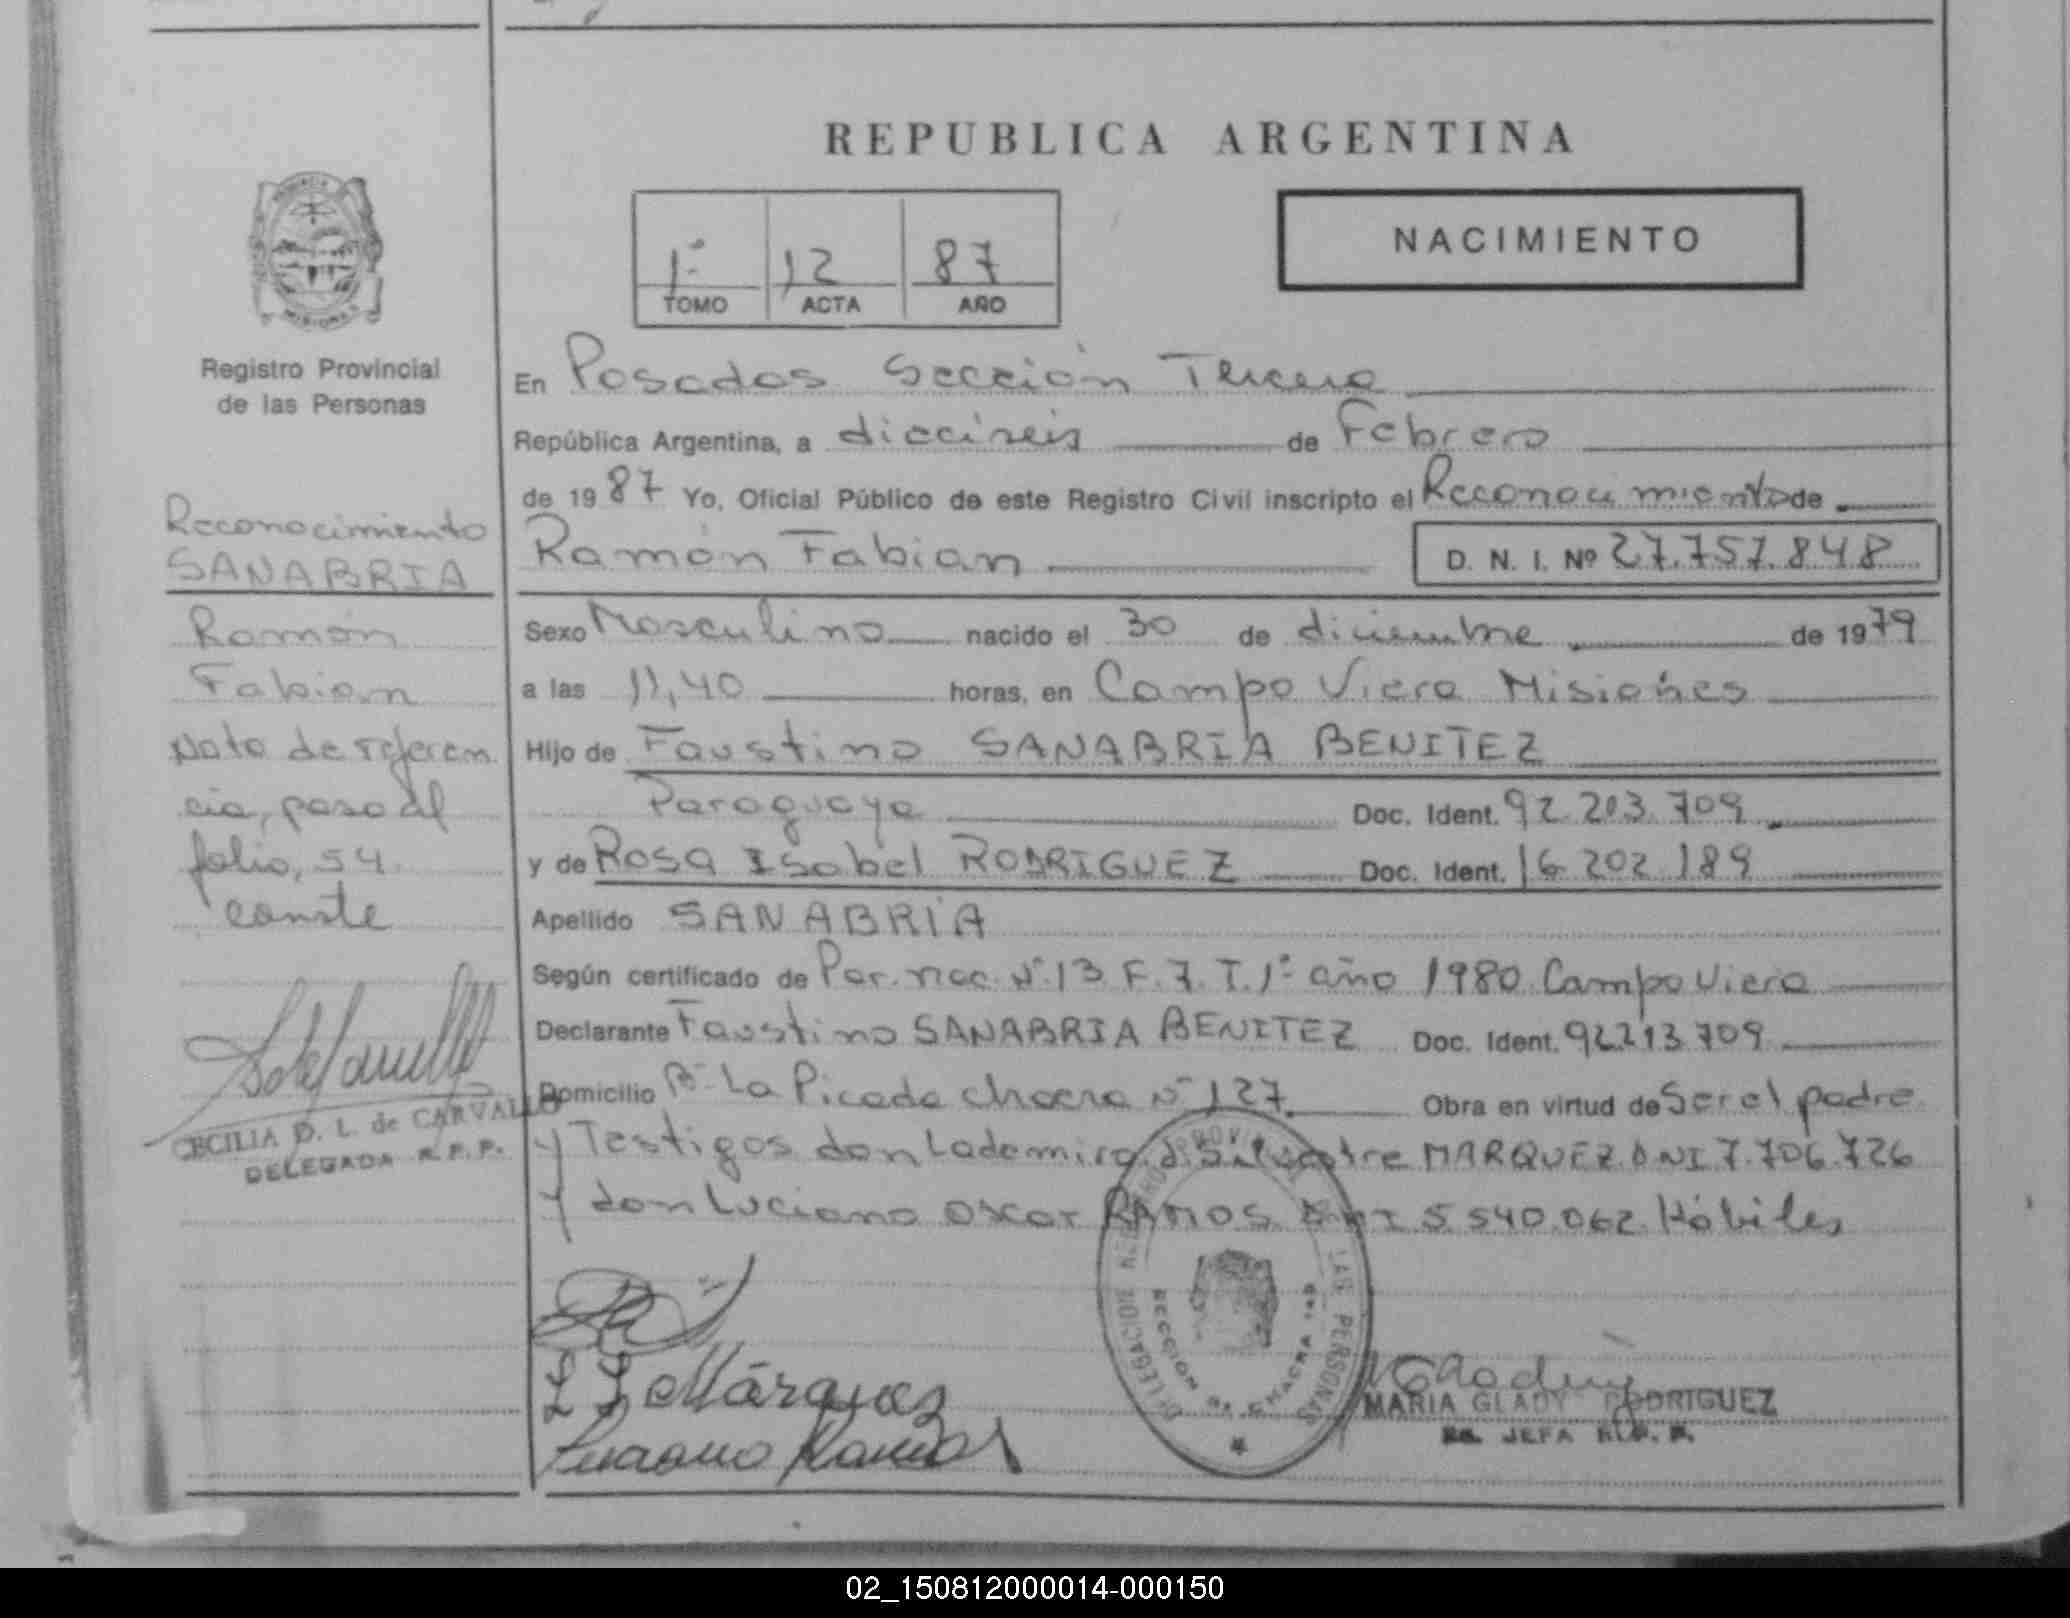 REPUBLICA ARGENTINA
PROVINCIA
MISIONES
Registro Provincial
de las Personas
1º 12 87
TOMO ACTA AÑO
NACIMIENTO
En Posadas Sección Tercera
República Argentina, a dieciseis de Febrero
de 1987 Yo, Oficial Público de este Registro Civil inscripto el Reconocimiento de
Ramón Fabian D. N. I. Nº 27.757.848
Sexo Masculino nacido el 30 de diciembre de 1979
a las 11,40 horas, en Campo Viera Misiones
Hijo de Faustino SANABRIA BENITEZ
Paraguaya Doc. Ident. 92.203.709
y de Rosa Isabel RODRIGUEZ Doc. Ident. 16.202.189
Apellido SANABRIA
Según certificado de Par. nac. Nº 13 F. 7. T. 1º año 1980 Campo Viera
Declarante Faustino SANABRIA BENITEZ Doc. Ident. 92.213.709
Domicilio Bº La Picada chacra Nº 127 Obra en virtud de Ser el padre
y Testigos don Lademiro Silvestre MARQUEZ DNI 7.706.726
y don Luciano Oscar RAMOS DNI 5.540.062 Hábiles
Reconocimiento
SANABRIA
Ramón
Fabian
Nota de referen
cia, paso al
folio, 54.
conste
CECILIA D. L. de CARVALLO
DELEGADA R.P.P.
Márquez
Luciano Ramos
DELEGACION REGISTRO PROVINCIAL DE LAS PERSONAS
SECCION CHACRA
MARIA GLADY RODRIGUEZ
JEFA R.P.P.
02_150812000014-000150